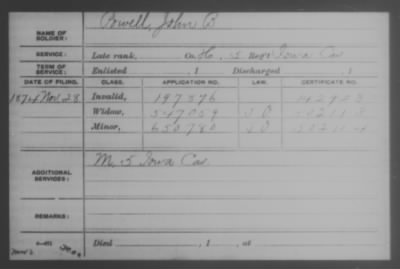 NAME OF SOLDIER: Powell, John B
SERVICE: Late rank, Co. H, 5 Reg't Iowa Cav
TERM OF SERVICE: Enlisted , 1 Discharged , 1
DATE OF FILING. CLASS. APPLICATION NO. LAW. CERTIFICATE NO.
1874 Nov. 28 Invalid, 197376
Widow, 547059
Minor, 650780
ADDITIONAL SERVICES: M, 5 Iowa Cav
REMARKS:
Died , 1 , at